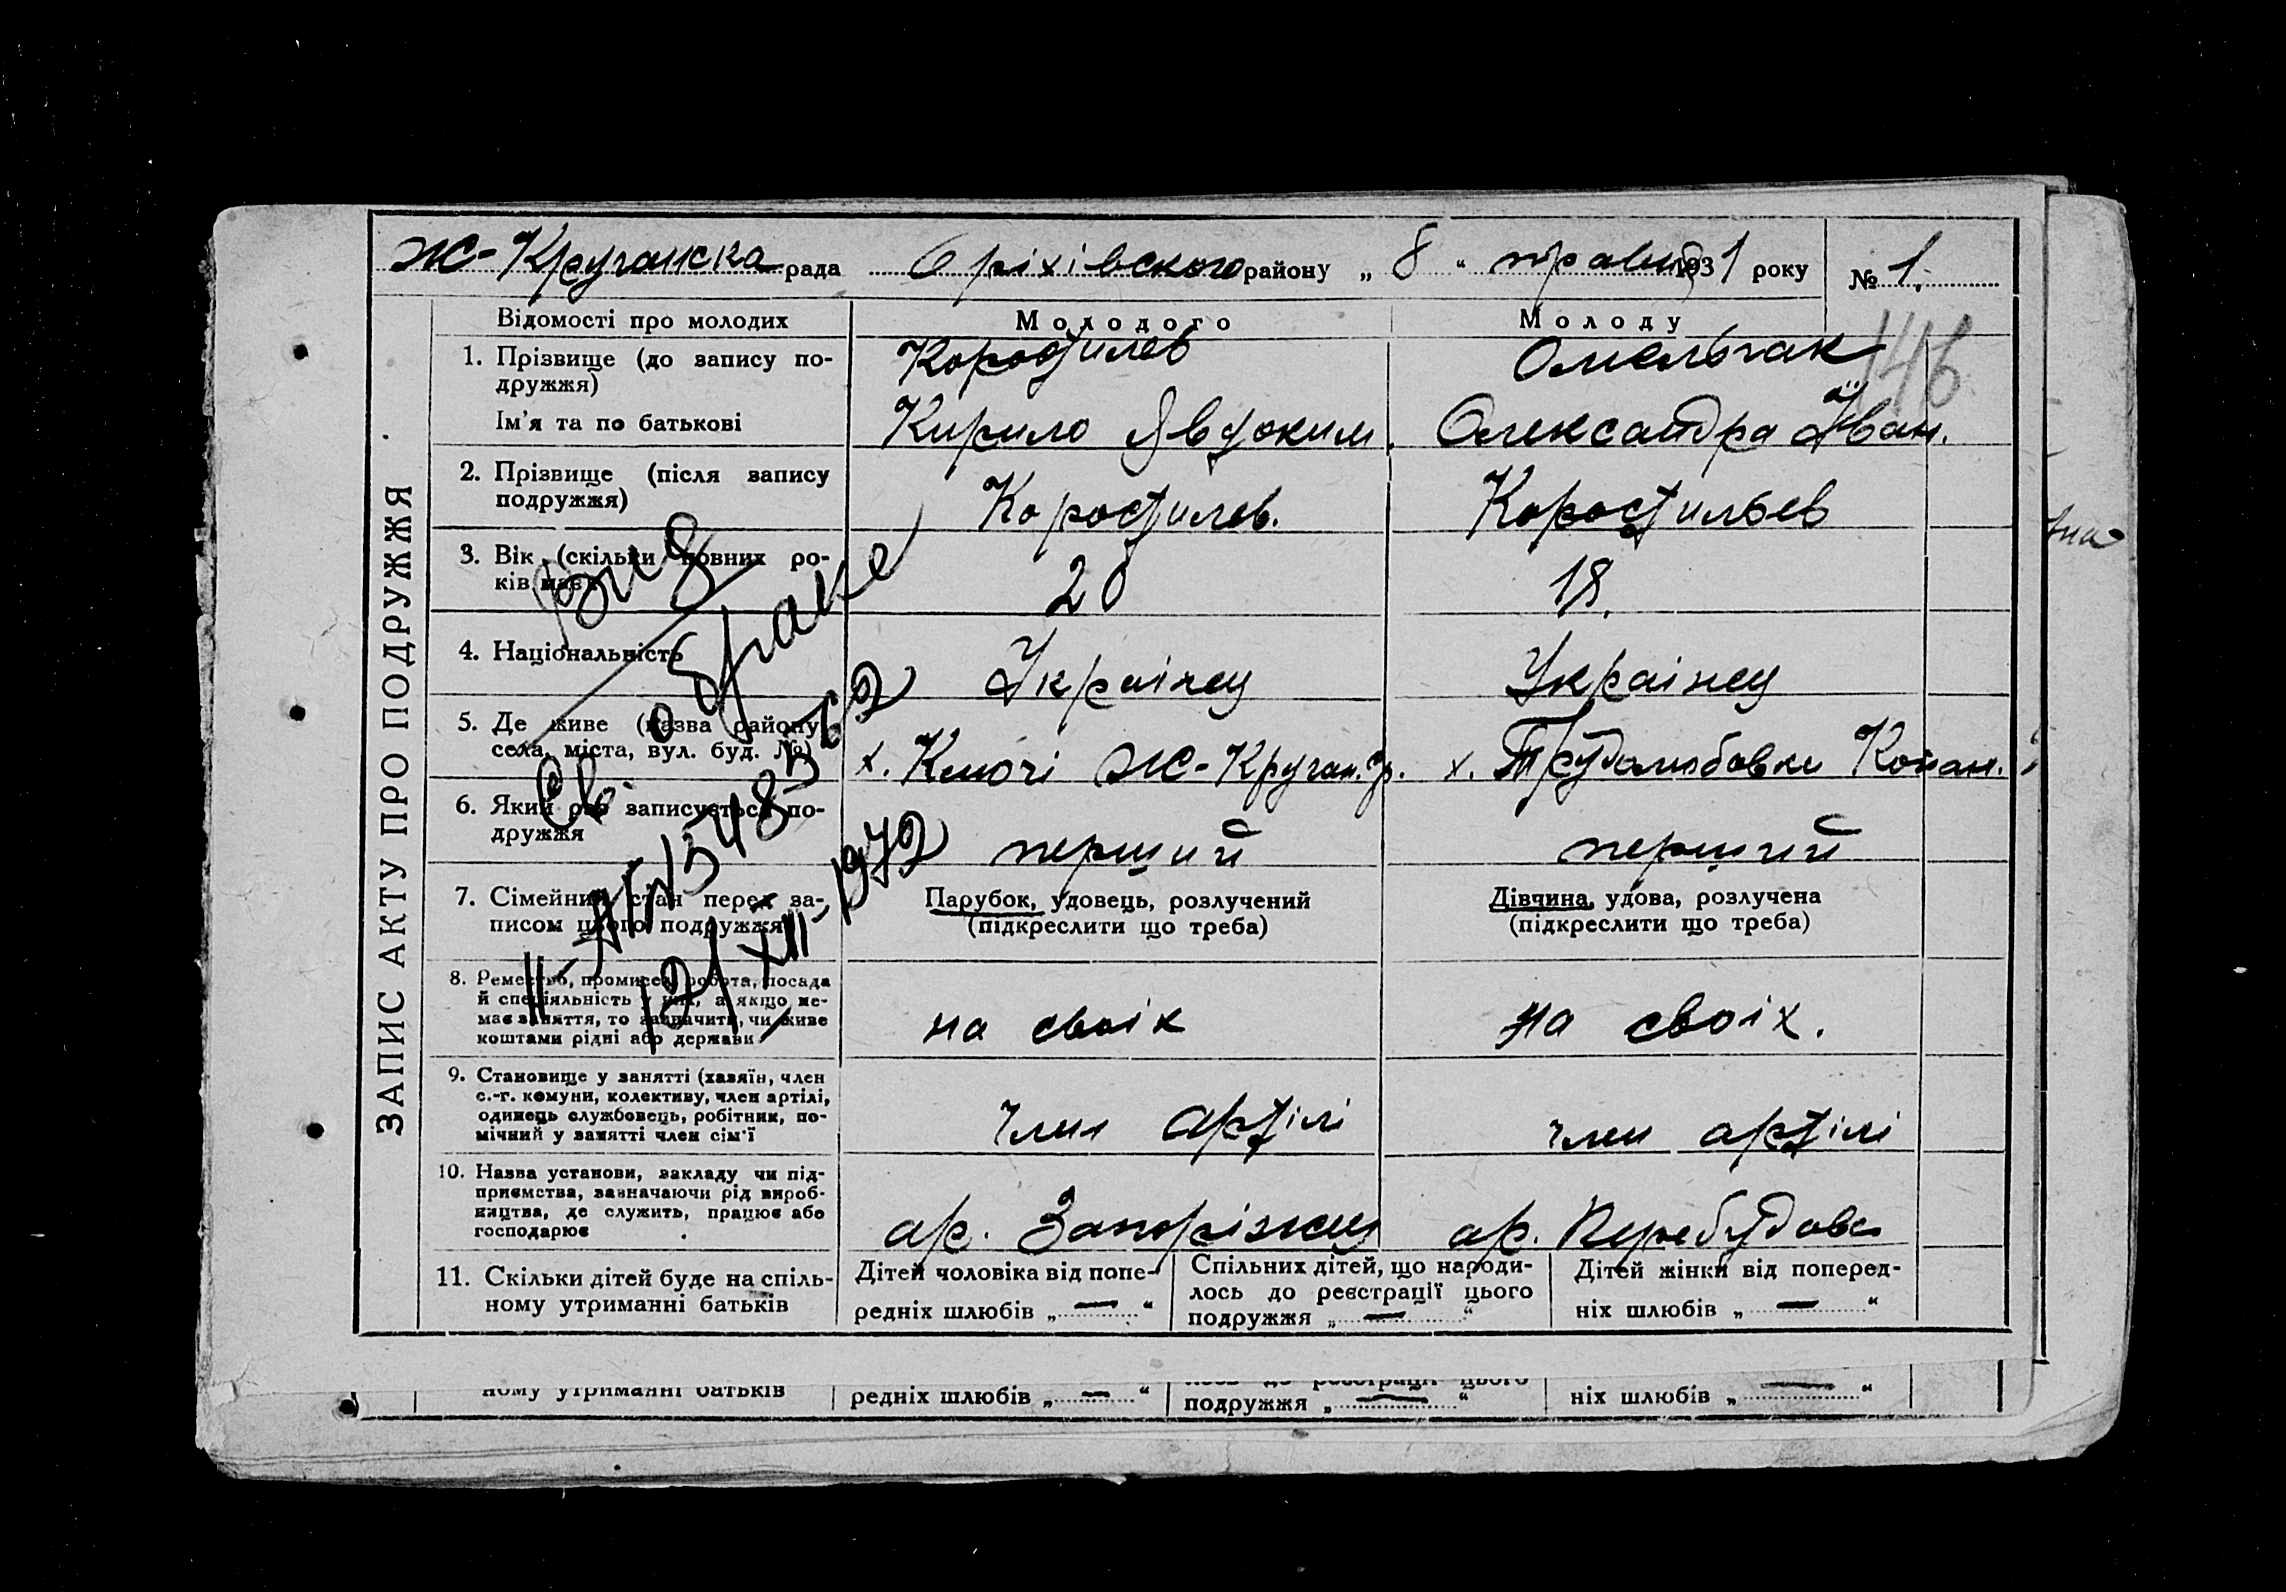 Ж-Кручанска рада Оріхівского району „ 8 “ травня 1931 року № 1.
146
ЗАПИС АКТУ ПРО ПОДРУЖЖЯ
Відомості про молодих
Молодого
Молоду
1. Прізвище (до запису по-
дружжя)
Коростилев
Омельчак
Ім'я та по батькові
Кирило Явдоким.
Олександра Іван.
2. Прізвище (після запису
подружжя)
Коростилев.
Коростильев
3. Вік (скільки повних ро-
ків має)
20
18.
4. Національність
Українец
Українец
5. Де живе (назва району
села, міста, вул. буд. №)
х. Ключі Ж-Кручан.
х. Трудолюбовки Копан.
6. Який раз записується по-
дружжя
перший
перший
7. Сімейний стан перед за-
писом цього подружжя
Парубок, удовець, розлучений
(підкреслити що треба)
Дівчина, удова, розлучена
(підкреслити що треба)
8. Ремество, промисел, робота, посада
й спеціяльність у них, а якщо не-
має заняття, то зазначити, чи живе
коштами рідні або держави
на своіх
на своіх.
9. Становище у занятті (хазяїн, член
с.-г. комуни, колективу, член артілі,
одинець службовець, робітник, по-
мічний у занятті член сім'ї
член артілі
член артілі
10. Назва установи, закладу чи під-
приємства, зазначаючи рід вироб-
ництва, де служить, працює або
господарює
ар. Запоріжец
ар. Перебудова
11. Скільки дітей буде на спіль-
ному утриманні батьків
Дітей чоловіка від попе-
редніх шлюбів „ — “
Спільних дітей, що народи-
лось до реєстрації цього
подружжя „ — “
Дітей жінки від поперед-
ніх шлюбів „ — “
Выд
о браке
Св.
12/XII-1972
ному утриманні батьків
редніх шлюбів „ — “
лось до реєстрації цього
подружжя „ — “
ніх шлюбів „ — “